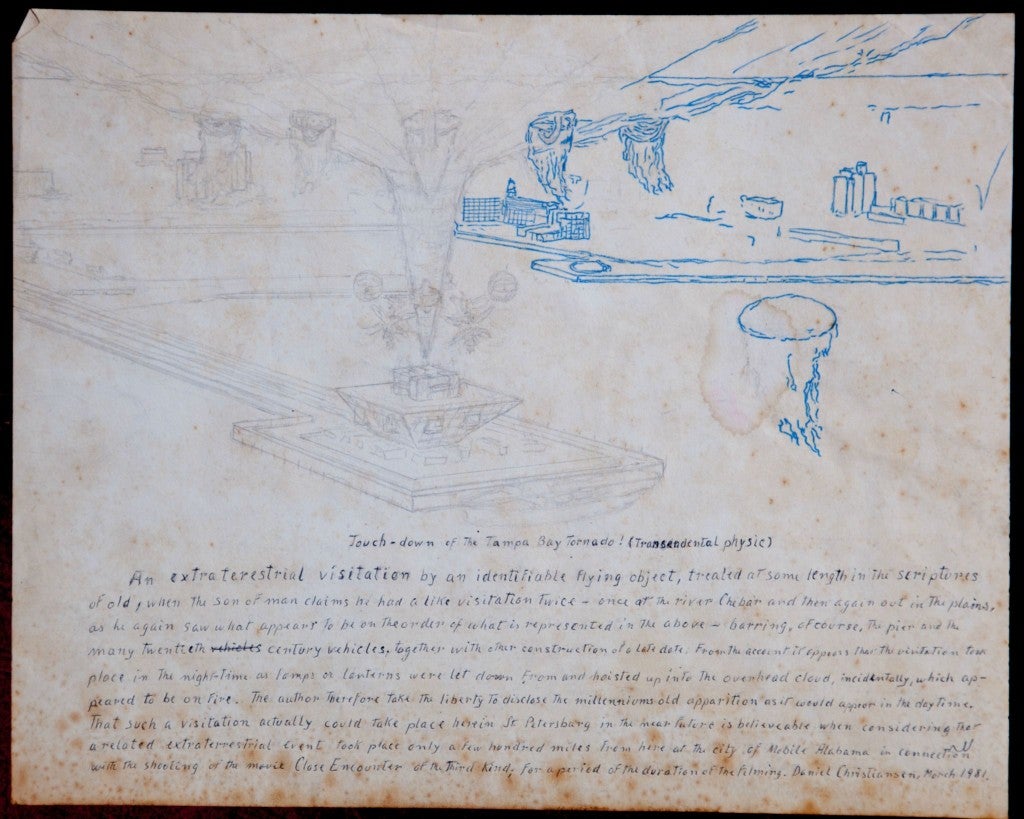 Touch-down of the Tampa Bay Tornado! (Transendental physic)
An extraterestrial visitation by an identifiable flying object, treated at some length in the scriptures
of old, when the son of man claims he had a like visitation twice - once at the river Chebar and then again out in the plains,
as he again saw what appears to be on the order of what is represented in the above - barring, of course, the pier and the
many twentieth vehicles century vehicles, together with other construction of a late date. From the account it appears that the visitation took
place in the night-time as lamps or lanterns were let down from and hoisted up into the overhead cloud, incidentally, which ap-
peared to be on fire. The author therefore take the liberty to disclose the millenniums old apparition as it would appear in the day time.
That such a visitation actually could take place herein St Petersburg in the near future is believeable when considering that
a related extraterrestrial event took place only a few hundred miles from here at the city of Mobile Alabama in connection
with the shooting of the movie Close Encounter of the Third Kind, for a period of the duration of the filming. Daniel Christiansen, March 1981.